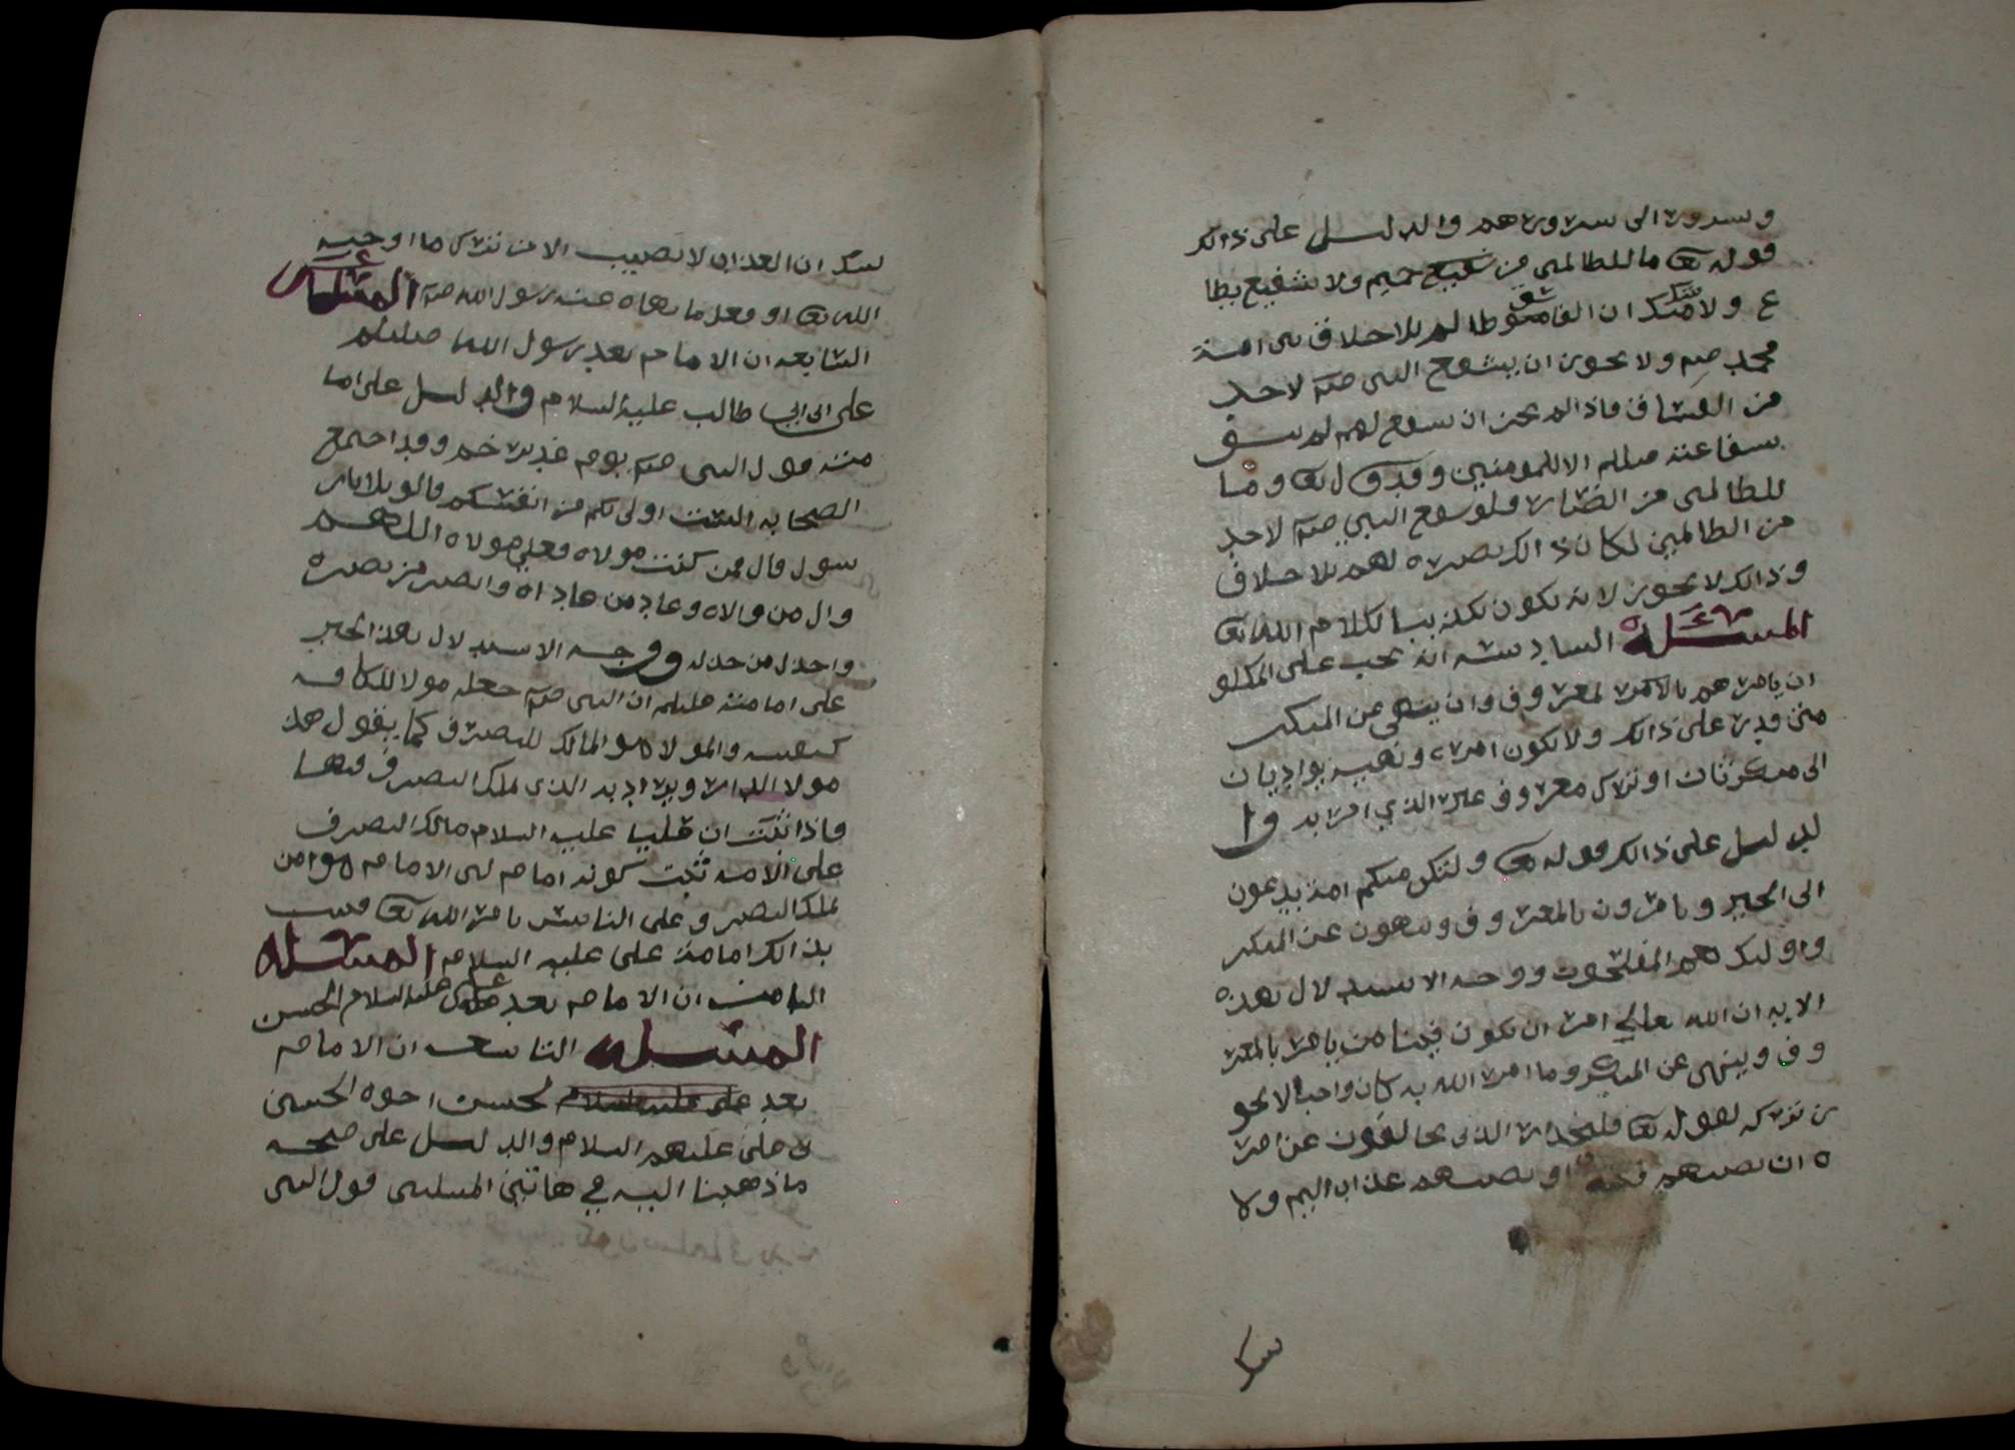 وسرورا الى سرورهم والدليل على ذالك
قوله تعا ما للظالمين من شفيع حميم ولا شفيع يطا
ع ولا شك ان الفاسق ظالم بلا خلاف بين امة
محمد صلم ولا يجوز ان يشفع النبي صلم لاحد
من الفساق فاذا لم يجز ان يشفع لهم لم تبق
شفاعته صللم الا للمومنين وقد قال تعا وما
للظالمين من انصار فلو شفع النبي صلم لاحد
من الظالمين لكان ذالك نصره لهم بلا خلاف
وذالك لا يجوز لانه يكون تكذيبا لكلام الله تعا
المسئلة السادسه انه يجب على المكلف
ان يامرهم بالامر لمعروف وان ينهى عن المنكر
متى قدر على ذالك ولا يكون امره ونهيه يواديان
الى منكر ثان او ترك معروف غير الذي امر به وا
لدليل على ذالك قوله تعا ولتكن منكم امة يدعون
الى الخير ويامرون بالمعروف وينهون عن المنكر
واوليك هم المفلحون ووجه الاستدلال بهذه
الايه ان الله تعالى امر ان يكون فينا من يامر بالمعر
وف وينهى عن المنكر وما امر الله به كان واجبا لا يجو
ز تركه لقوله تعا فليحذر الذين يخالفون عن امر
ه ان تصيبهم فتنة او يصيبهم عذاب اليم ولا
شك
شك ان العذاب لا يصيب الا من ترك ما اوجبه
الله تعا او فعل ما نهاه عنه رسول الله صلم المسئلة
السابعه ان الامام بعد رسول الله صللم
علي ابن ابي طالب عليه السلام والدليل على اما
مته قول النبي صلم يوم غدير خم وقد اجتمع
الصحابه الست اولى بكم من انفسكم قالو بلا يار
سول قال فمن كنت مولاه فعلي مولاه اللهم
وال من والاه وعاد من عاداه وانصر من نصره
واخذل من خذله ووجه الاستدلال بهذ الخبر
على امامته عليلم ان النبي صلم جعله مولا للكافه
كنفسه والمولا هو المالك للتصرف كما يقول هذ
مولا الدار ويراد به الذي يملك التصرف فيها
فاذا ثبت ان عليا عليه السلام مالك التصرف
على الامه ثبت كونه امام لان الامام هو من
يملك التصرف على الناس بامر الله تعا فثبت
بذالك امامة علي عليه السلام المسئله
الثامنه ان الامام بعد علي عليه السلام الحسن
المسئله التاسعه ان الامام
بعد علي عليه السلام لحسن اخوه الحسين
بن علي عليهم السلام والدليل على صحه
ماذهبنا اليه في هاتين المسلتين قول النبي